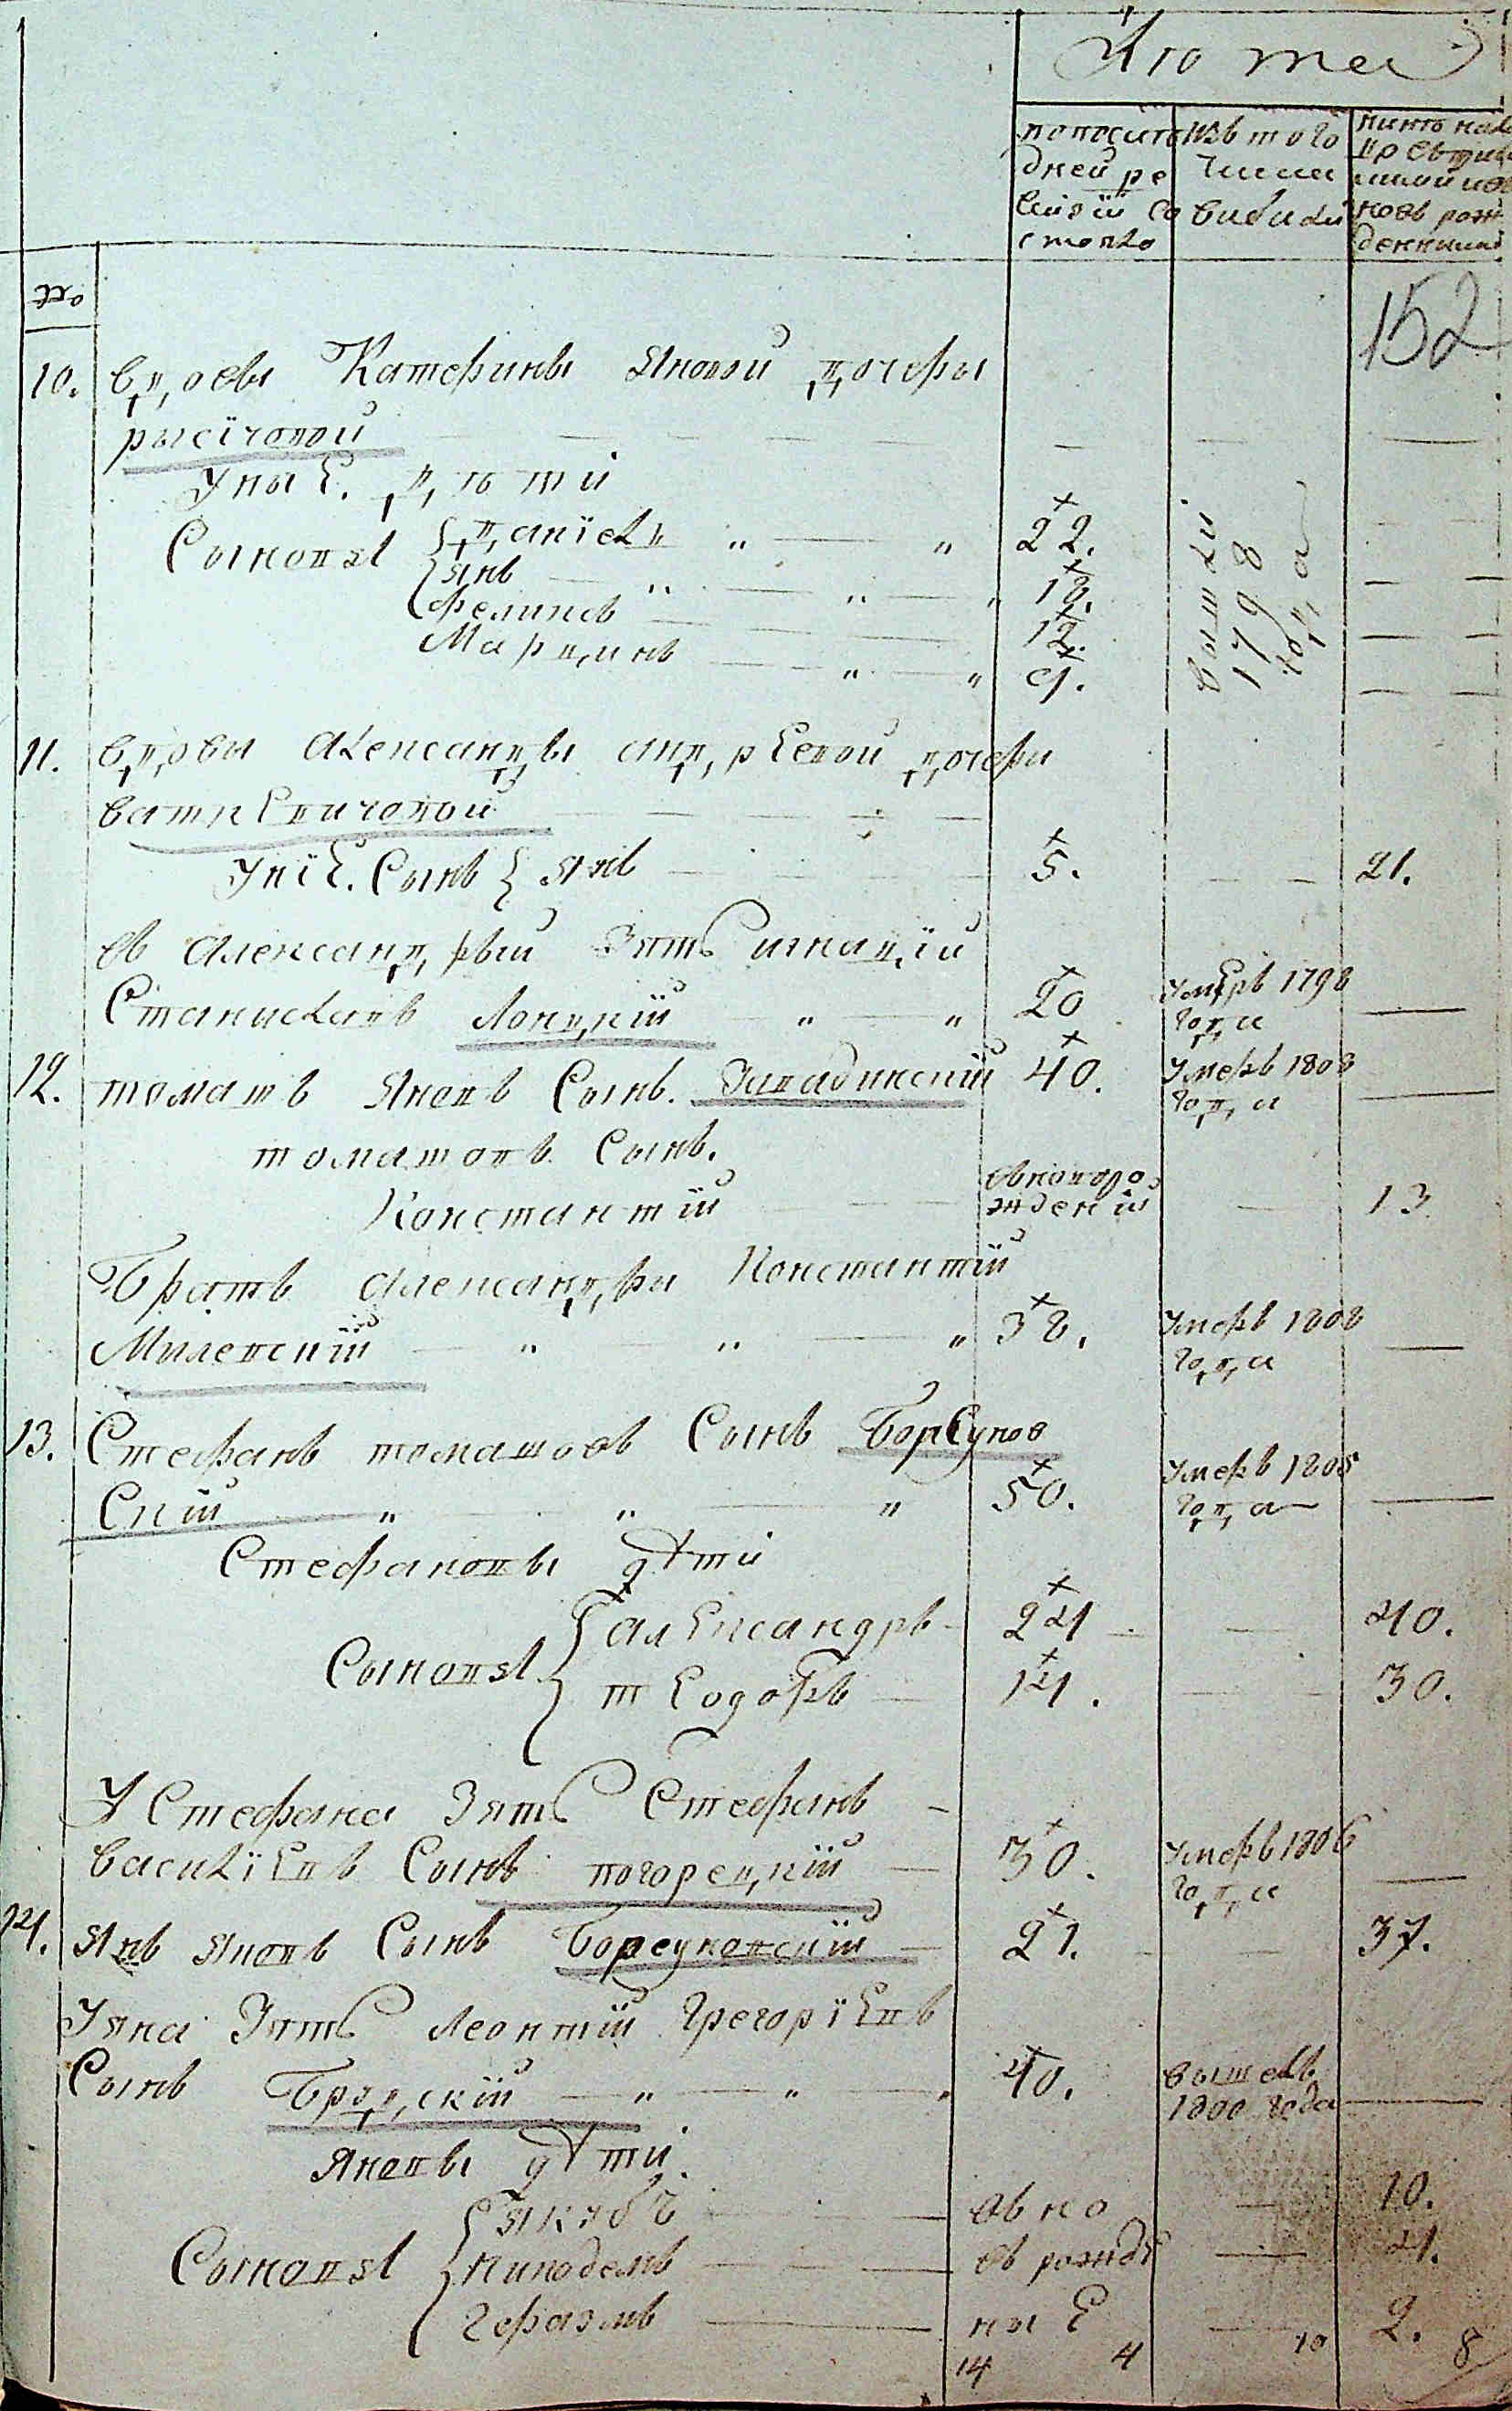 по последней ре визіи со стояло
изъ того числа выбили
№
152
10. вдовы Катерины Яновой дочери
рысічовой
У ныхъ дѣти
Сыновья Данієль 22.
Янъ 18.
Феликсъ 12.
Марцинъ 9.
вышли 1798 года
11. вдови Александры андрѣевой дочери
Уніе. Сынъ Янъ 5. 21.
съ Александрый Зять игнацій
Станиславъ Лонцкій 20 Умеръ 1798 года
12. томашъ Яновъ Сынъ. 40. Умеръ 1808 года
томашовъ Сынъ.
Константій вновьрожденій 13
Братъ Александри Константій
Милевскій 38. Умеръ 1808 года
13. Стефанъ томашовъ Сынъ Борсуков
Скій 50. Умеръ 1805 года
Стефановы дѣти
Сыновья александръ 24 40.
теодоръ 14. 30.
У Стефана Зять Стефанъ
Василіевъ Сынъ погорецкій 30. Умеръ 1806 года
14. Янъ Яновъ Сынъ Борсуковскій 21. 37.
У яна Зять Леонтій Грегоріевъ
Сынъ Бродскій 40. вышелъ 1800 года
Яновы дѣти
Сыновья якубъ вно 10.
никодемъ въ рожде 4.
геразмъ ные 2.
14 4 10 8